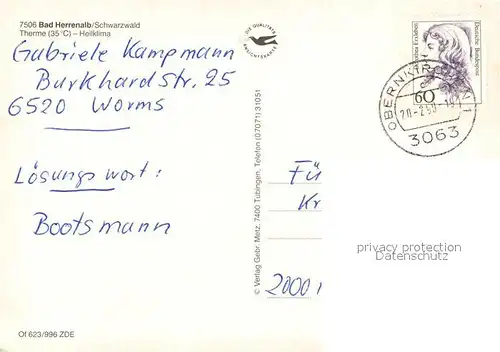 7506 Bad Herrenalb/Schwarzwald
Therme (35°C) – Heilklima
Gabriele Kampmann
Burkhardstr. 25
6520 Worms
Lösungswort:
Bootsmann
DIE QUALITÄTS
ANSICHTSKARTE
© Verlag Gebr. Metz, 7400 Tübingen, Telefon (07071) 31051
Deutsche Bundespost
60
3063
Fü
Kr
2000
privacy protection
Datenschutz
Of 623/996 ZDE